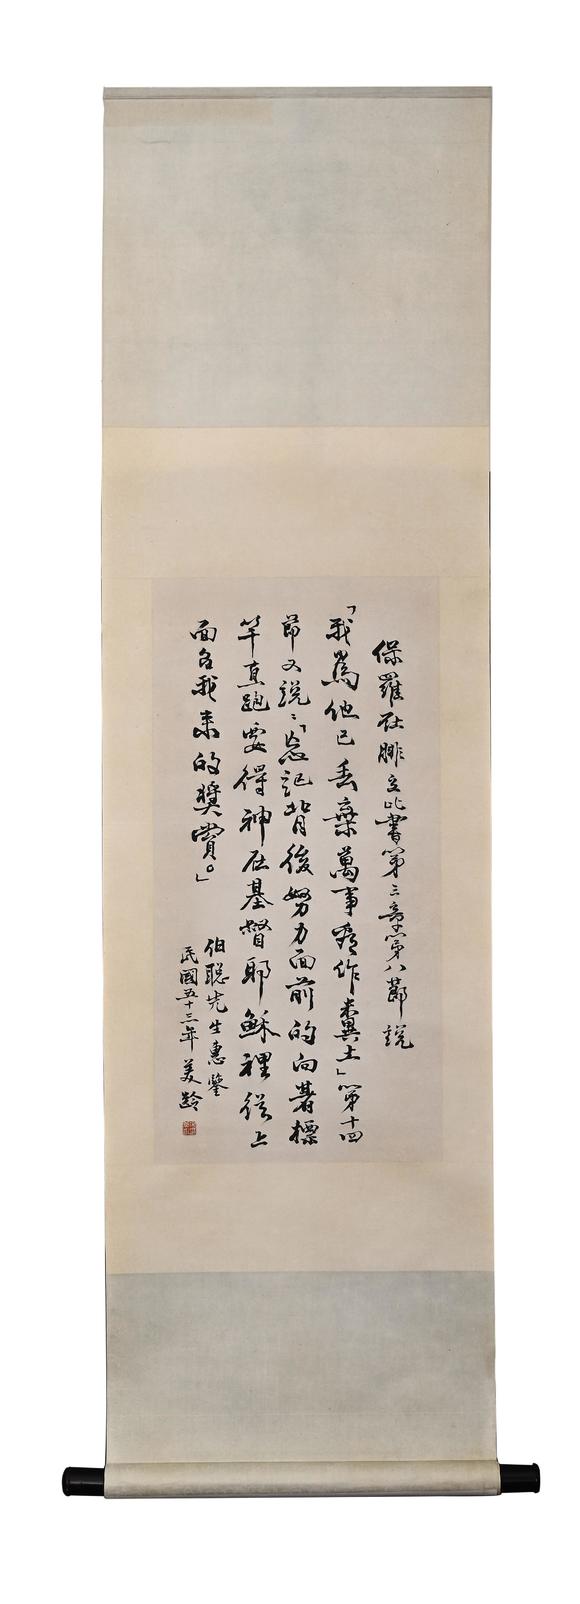 保羅在腓立比書第三章第八節說
「我為他已丟棄萬事看作糞土」第十四
節又說：「忘記背後努力面前的向着標
竿直跑要得神在基督耶穌裡從上
面召我來的獎賞。」
伯聰先生惠鑒
民國五十三年 美齡